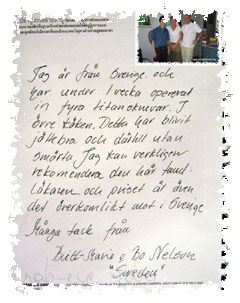 Jag är från Sverige och
har under 1 vecka opererat
in fyra titanskruvar. I
övre käken. Detta har blivit
jättebra och därtill utan
smärta. Jag kan verkligen
rekomendera den här tand-
läkaren och priset är även
det överkomligt mot i Sverige
Många tack från
Britt-Marie & Bo Nelson
"Sweden"